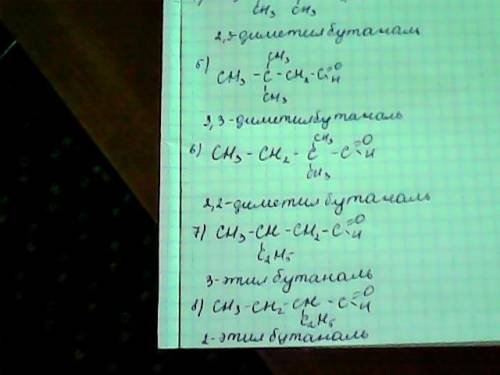 CH₃ CH₃
2,3-диметилбутаналь
CH₃
5) CH₃ - C - CH₂ - C =O H
CH₃
3,3-диметилбутаналь
CH₃
6) CH₃ - CH₂ - C - C =O H
CH₃
2,2-диметилбутаналь
7) CH₃ - CH - CH₂ - C =O H
C₂H₅
3-этилбутаналь
8) CH₃ - CH₂ - CH - C =O H
C₂H₅
2-этилбутаналь